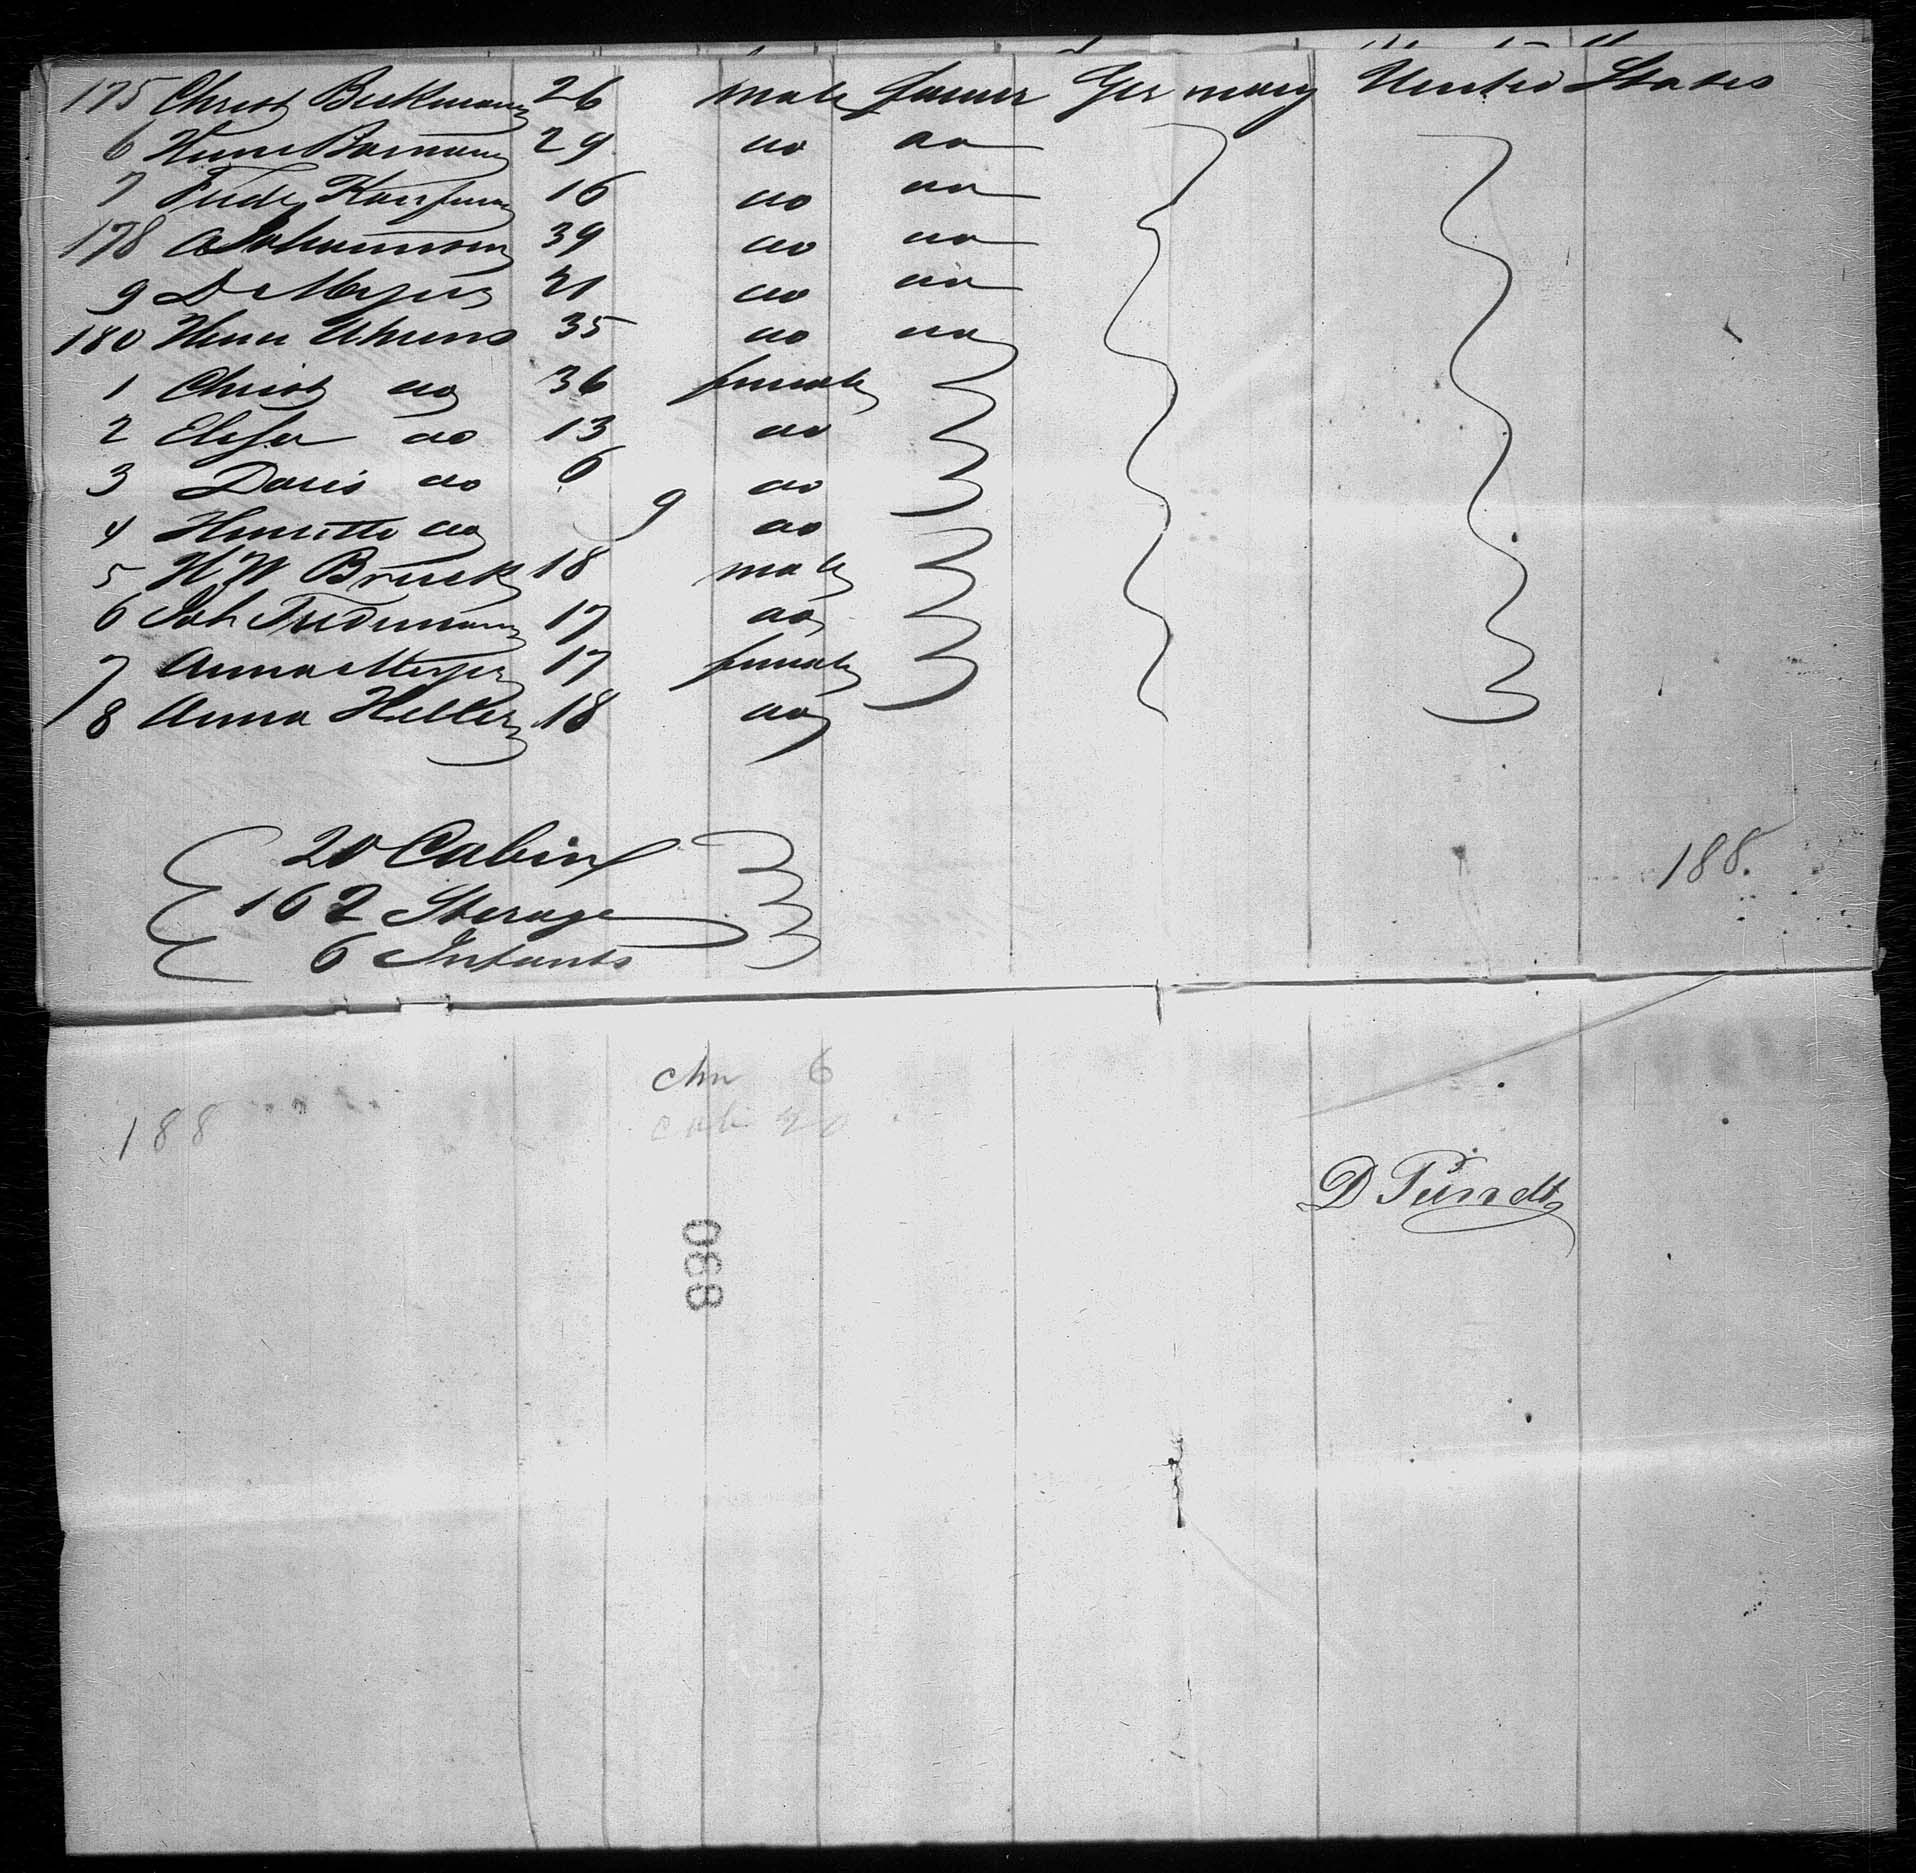 175 Christ Beckmann 26 male farmer Germany United States
6 Henr Bormann 29 do do
7 Friedr Kaufmann 16 do do
178 A Johannsen 39 do do
9 D Meyer 21 do do
180 Henr Ahrens 35 do do
1 Christ do 36 female
2 Elise do 13 do
3 Doris do 6 do
4 Henriette do 9 do
5 H W Bruck 18 male
6 Joh Tiedemann 17 do
7 Anna Meyer 17 female
8 Anna Heller 18 do
20 Cabin
162 Sterage
6 Infants
188.
chn 6
188 cab 20
D Pundt
068